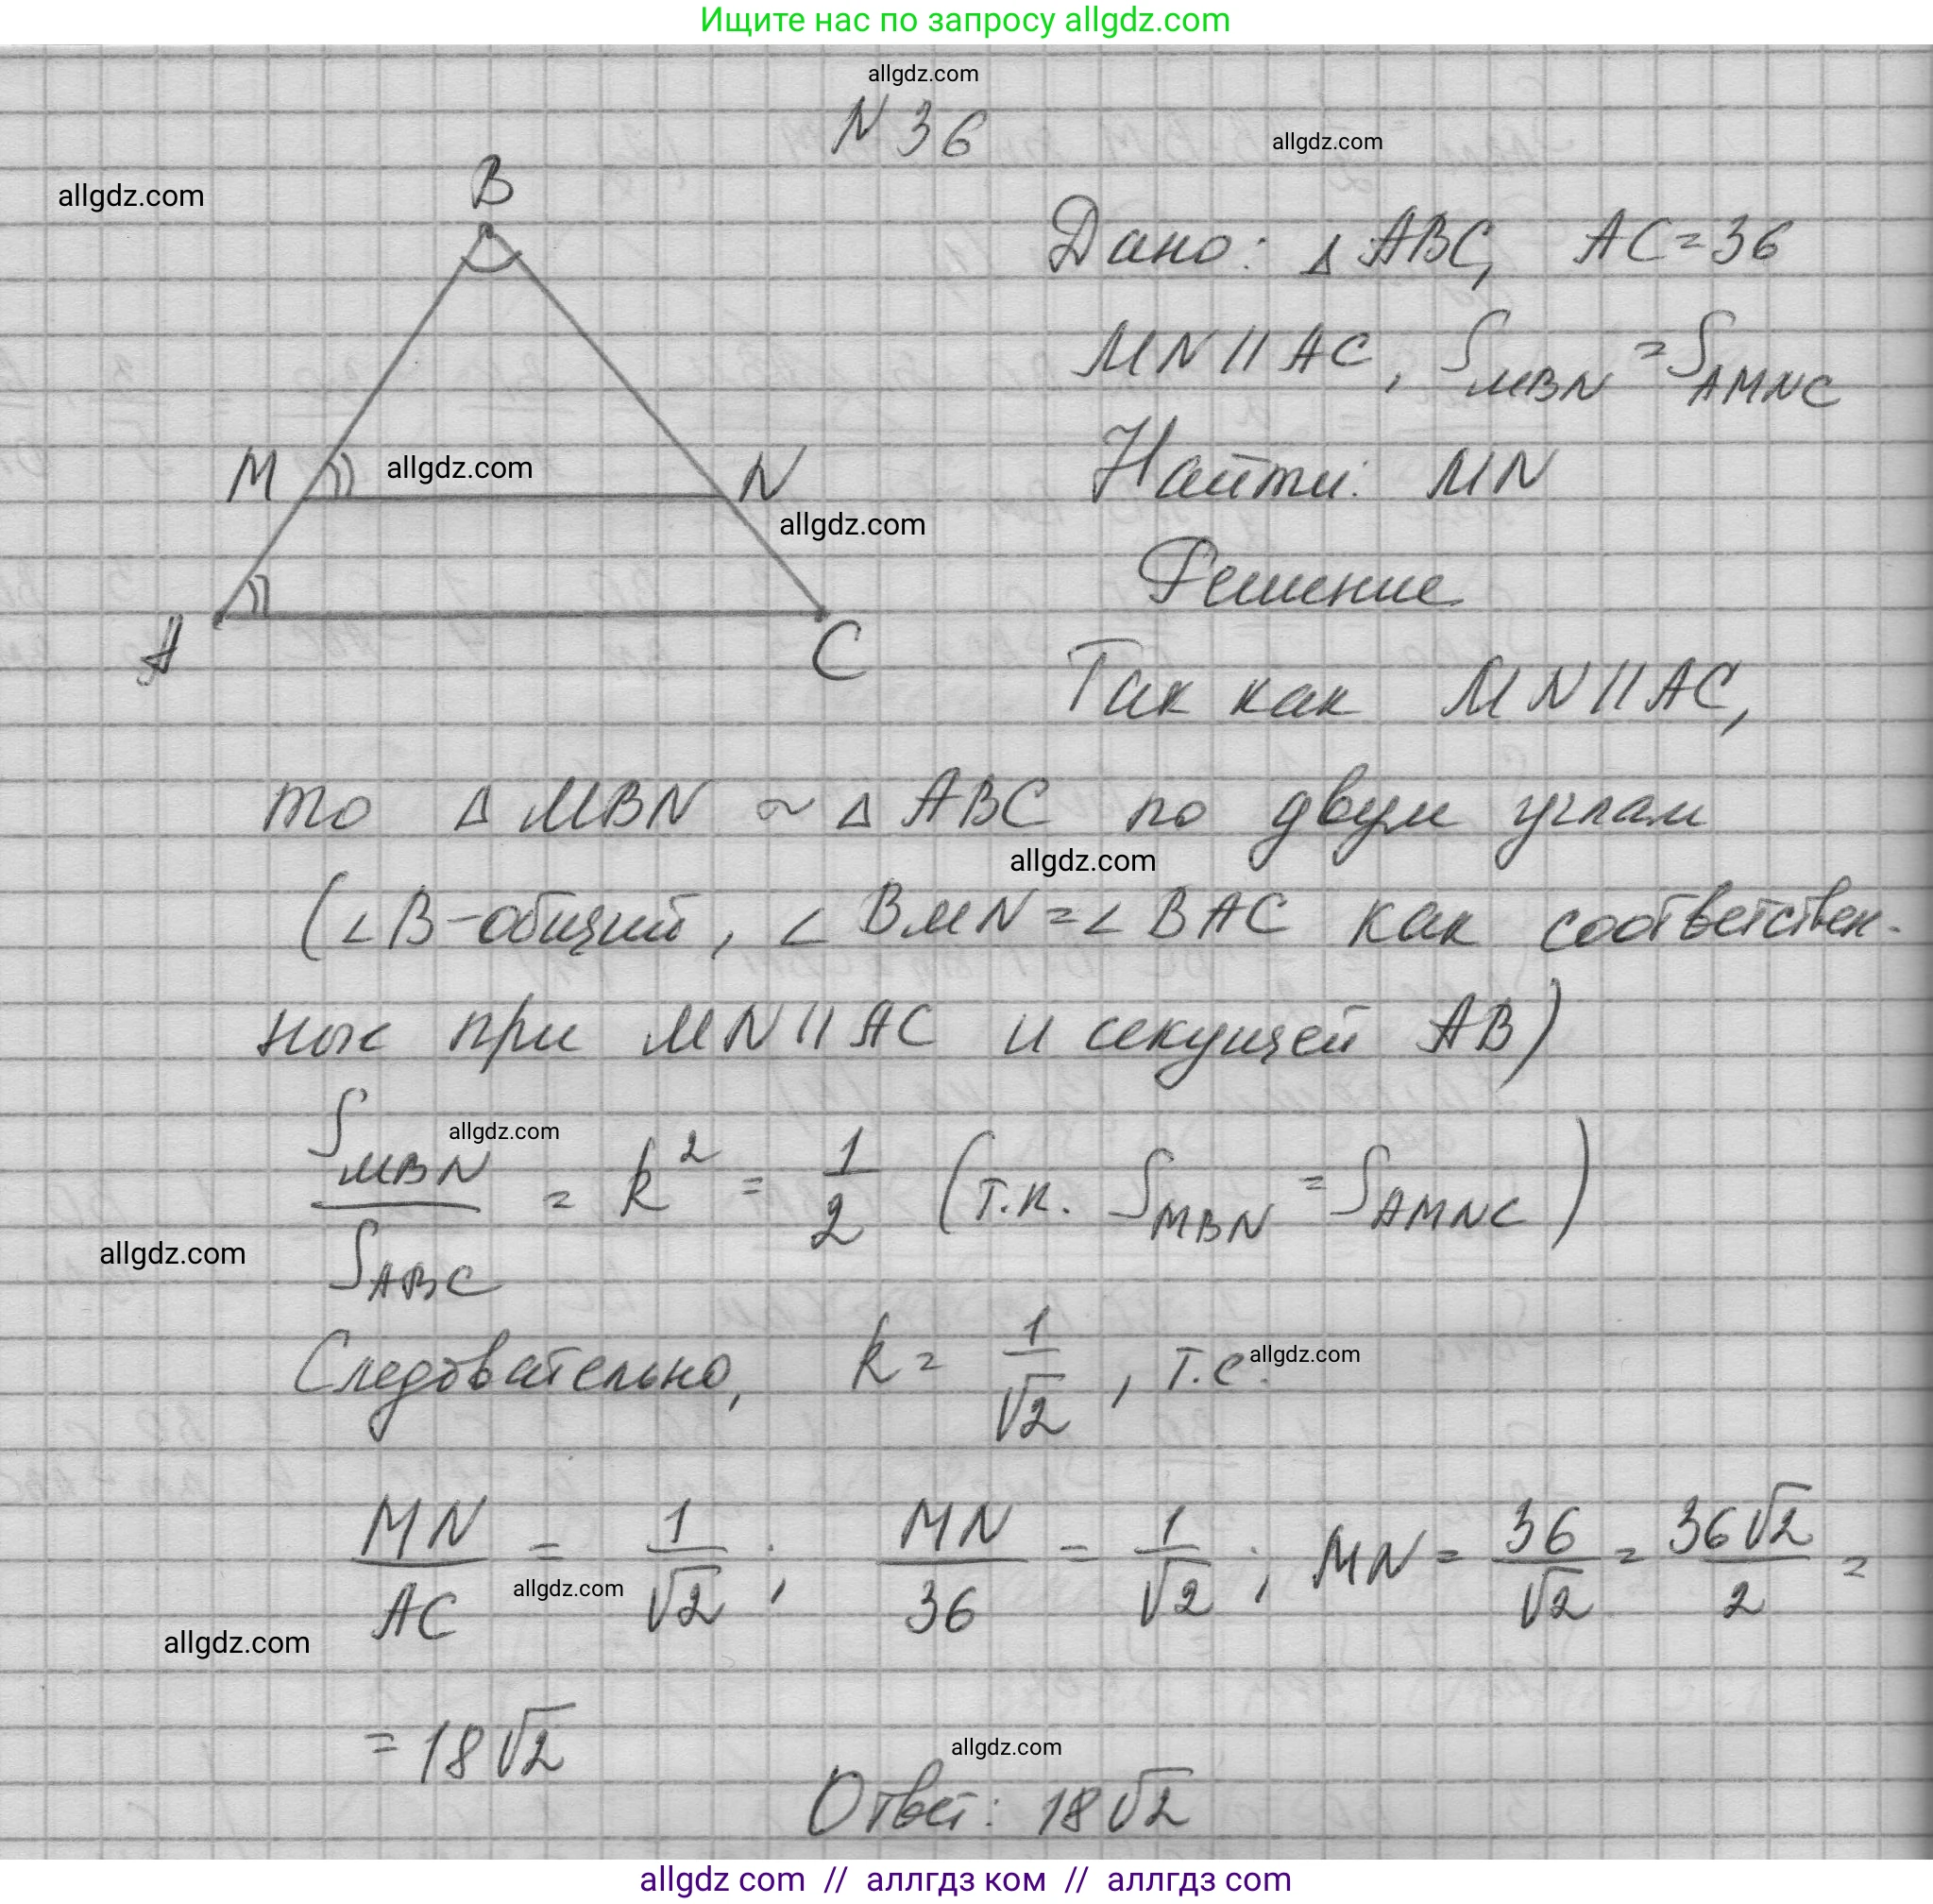 Ищите нас по запросу allgdz.com
allgdz.com
N 36
allgdz.com
allgdz.com
B
Дано: △ ABC, AC = 36
MN || AC, S_MBN = S_AMNC
M allgdz.com N
Найти: MN
allgdz.com
Решение
A C
Так как MN || AC,
то △ MBN ~ △ ABC по двум углам
allgdz.com
(∠B - общий, ∠BMN = ∠BAC как соответствен-
ные при MN || AC и секущей AB)
allgdz.com
S_MBN / S_ABC = k² = 1/2 (т.к. S_MBN = S_AMNC)
allgdz.com
Следовательно, k = 1/√2, т.е.
allgdz.com
MN/AC = 1/√2; MN/36 = 1/√2; MN = 36/√2 = 36√2/2 =
allgdz.com
allgdz.com
= 18√2
allgdz.com
Ответ: 18√2
allgdz com // аллгдз ком // аллгдз com